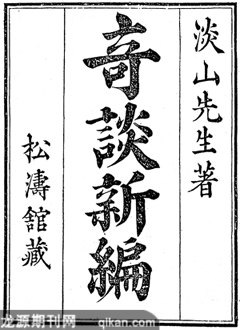 淡山先生著
奇談新編
松濤舘藏
龙源期刊网 qikan.com